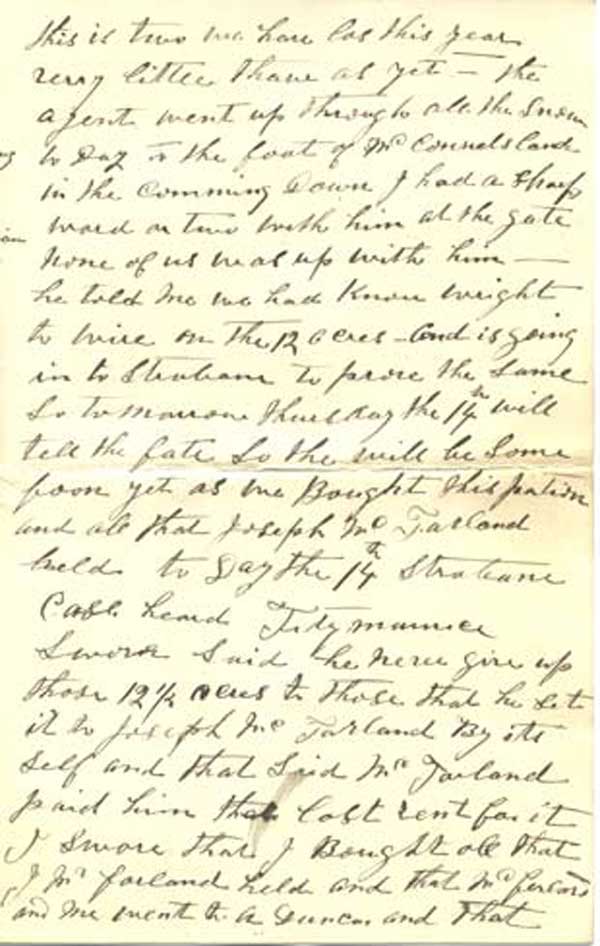 this is two we have los this year
very little thave as yet — the
agent went up through all the Snow
to Day to the foot of Mc Connels land
in the Comming Down I had a sharp
word or two with him at the gate
None of us was up with him —
he told me we had Know wright
to wire on the 12 acres - and is going
in to Strabane to prove the same
So to morrow thursday the 14th will
tell the fate So the will be Some
foon yet as we Bought this
and all that Joseph Mc Farland
held to Day the 14th Strabane
Case heard Fitymaurice
Swore Said he never give up
those 12 1/2 acres to those that he Set
it to Joseph Mc Farland By its
self and that Said Mc Farland
paid him the last rent for it
I swore that I Bought all that
J Mc farland held and that
and me went to A Duncan and that